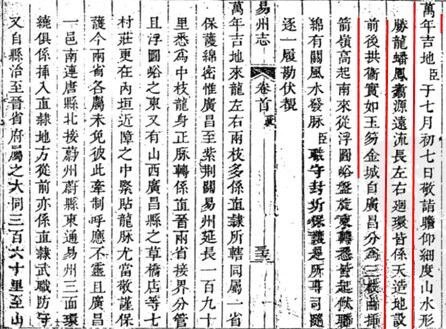 萬年吉地臣于七月初七日敬謹瞻仰細度山水形
勝龍蟠鳳翥源遠流長左右迴環皆係天造地設
前後拱衛實如玉笏金城自廣昌分為三枝由揷
箭嶺高起南來從浮圖峪盤旋更轉悉皆起伏聯
綿有關風水發脉臣職守封圻保護是所專司謹
逐一履勘伏覩
易州志
卷首
萬年吉地來龍左右兩枝多係直隸所轄同屬一省
保護綿密惟廣昌至紫荆關易州延長一百九十
里悉為中枝龍身正脉轉係直晉兩省接界分管
且浮圖峪之東又有山西廣昌縣之草橋店等七
村莊更在內垣近障之中緊貼龍脉尤當敬謹保
護今兩省各屬未免彼此牽制呼應不靈且廣昌
一邑南連唐縣北接蔚州蔚縣東通易州三面環
繞俱係揷入直隸地方從前亦係直隸武職防守
又自縣治至晉省府屬之大同三百六十里至山